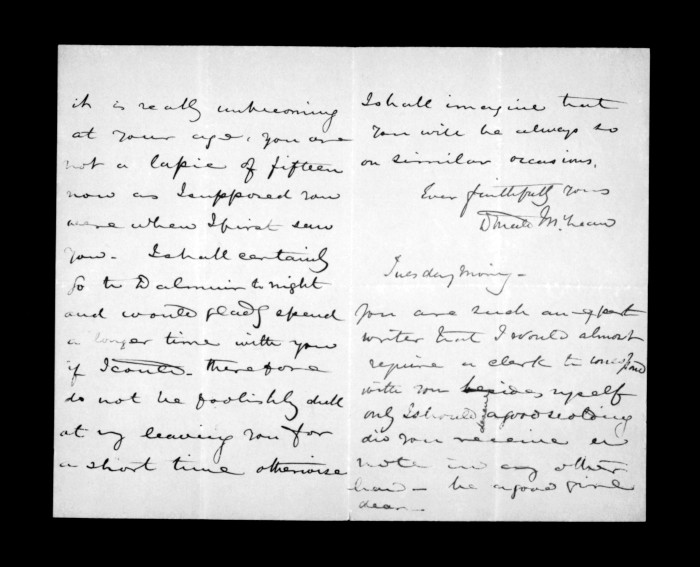 it is really unbecoming
at your age, you are
not a lapie of fifteen
now as I supposed you
were when I first saw
you - I shall certainly
go to Dalmuir to night
and would gladly spend
a longer time with you
if I could - therefore
do not be foolishly dull
at my leaving you for
a short time otherwise
I shall imagine that
you will be always so
on similar occasions.
Ever faithfully yours
Donald McLean
Tuesday Morning -
you are such an expert
writer that I would almost
require a clerk to correspond
with you besides myself
only I should a good scolding
did you receive a
note in any other
hand - be a good girl
dear -